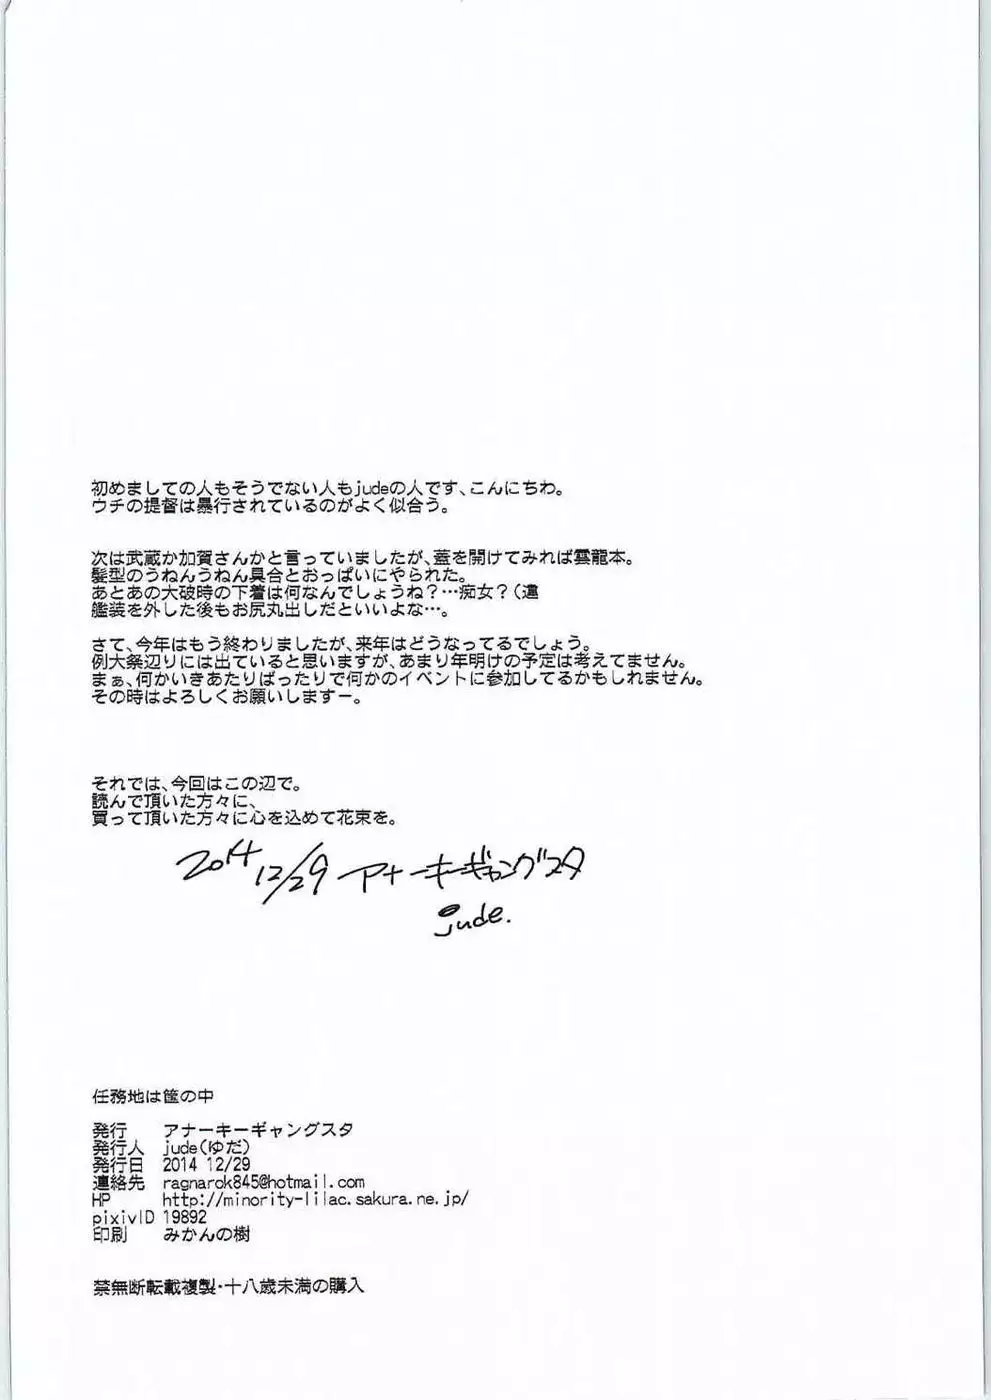 初めましての人もそうでない人もjudeの人です、こんにちわ。
ウチの提督は暴行されているのがよく似合う。
次は武蔵か加賀さんかと言っていましたが、蓋を開けてみれば雲龍本。
髪型のうねんうねん具合とおっぱいにやられた。
あとあの大破時の下着は何なんでしょうね？…痴女？（違
艦装を外した後もお尻丸出しだといいよな…。
さて、今年はもう終わりましたが、来年はどうなってるでしょう。
例大祭辺りには出ていると思いますが、あまり年明けの予定は考えてません。
まぁ、何かいきあたりばったりで何かのイベントに参加してるかもしれません。
その時はよろしくお願いしますー。
それでは、今回はこの辺で。
読んで頂いた方々に、
買って頂いた方々に心を込めて花束を。
2014 12/29 アナーキーギャングスタ
jude.
任務地は筐の中
発行 アナーキーギャングスタ
発行人 jude(ゆだ)
発行日 2014 12/29
連絡先 ragnarok845@hotmail.com
HP http://minority-lilac.sakura.ne.jp/
pixivID 19892
印刷 みかんの樹
禁無断転載複製・十八歳未満の購入